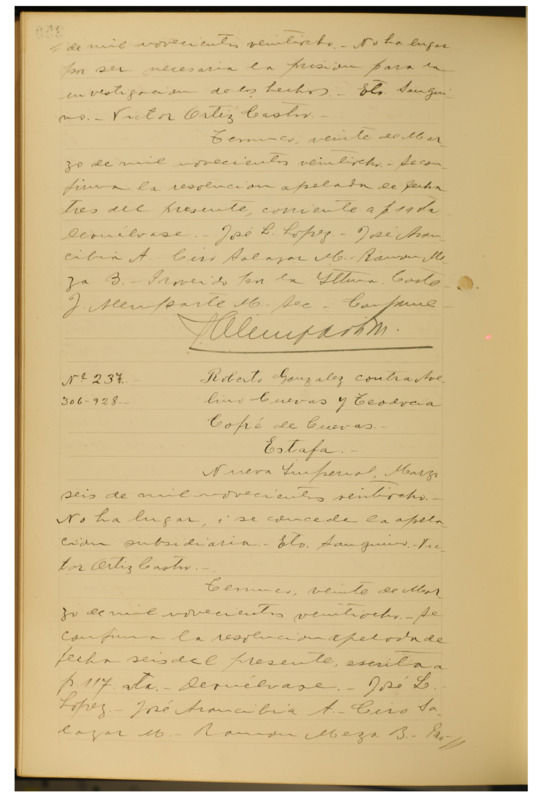 de mil novecientos veintiocho.- No ha lugar
por ser necesaria la prision para la
investigacion de los hechos - Eto. Sangui
no. - Victor Ortiz Castro. -
Temuco, veinte de Mar
zo de mil novecientos veintiocho.- Se con
firma la resolucion apelada de fecha
tres del presente, corriente a f. 19 vta
Devuélvase. - José L. Lopez - José Aran
cibia A. - Ciro Salazar M. - Ramon Me
za B. - Proveido por la Iltma. Corte -
J. Alemparte M. Sec - Conforme -
Nº 237. Roberto Gonzalez contra Ave
306-928.- lino Cuevas y Teodocia
Copié de Cuevas. -
Estafa. -
Nueva Imperial, Marzo
seis de mil novecientos veintiocho. -
No ha lugar, i se concede la apela
cion subsidiaria - Eto. Sanguino. Vic
tor Ortiz Castro. -
Temuco, veinte de Mar
zo de mil novecientos veintiocho. - Se
confirma la resolucion apelada de
fecha seis del presente, escrita a
f. 117 vta. - Devuélvase. - José L.
Lopez - José Arancibia A. - Ciro Sa
lazar M. - Ramon Meza B. - Pro-